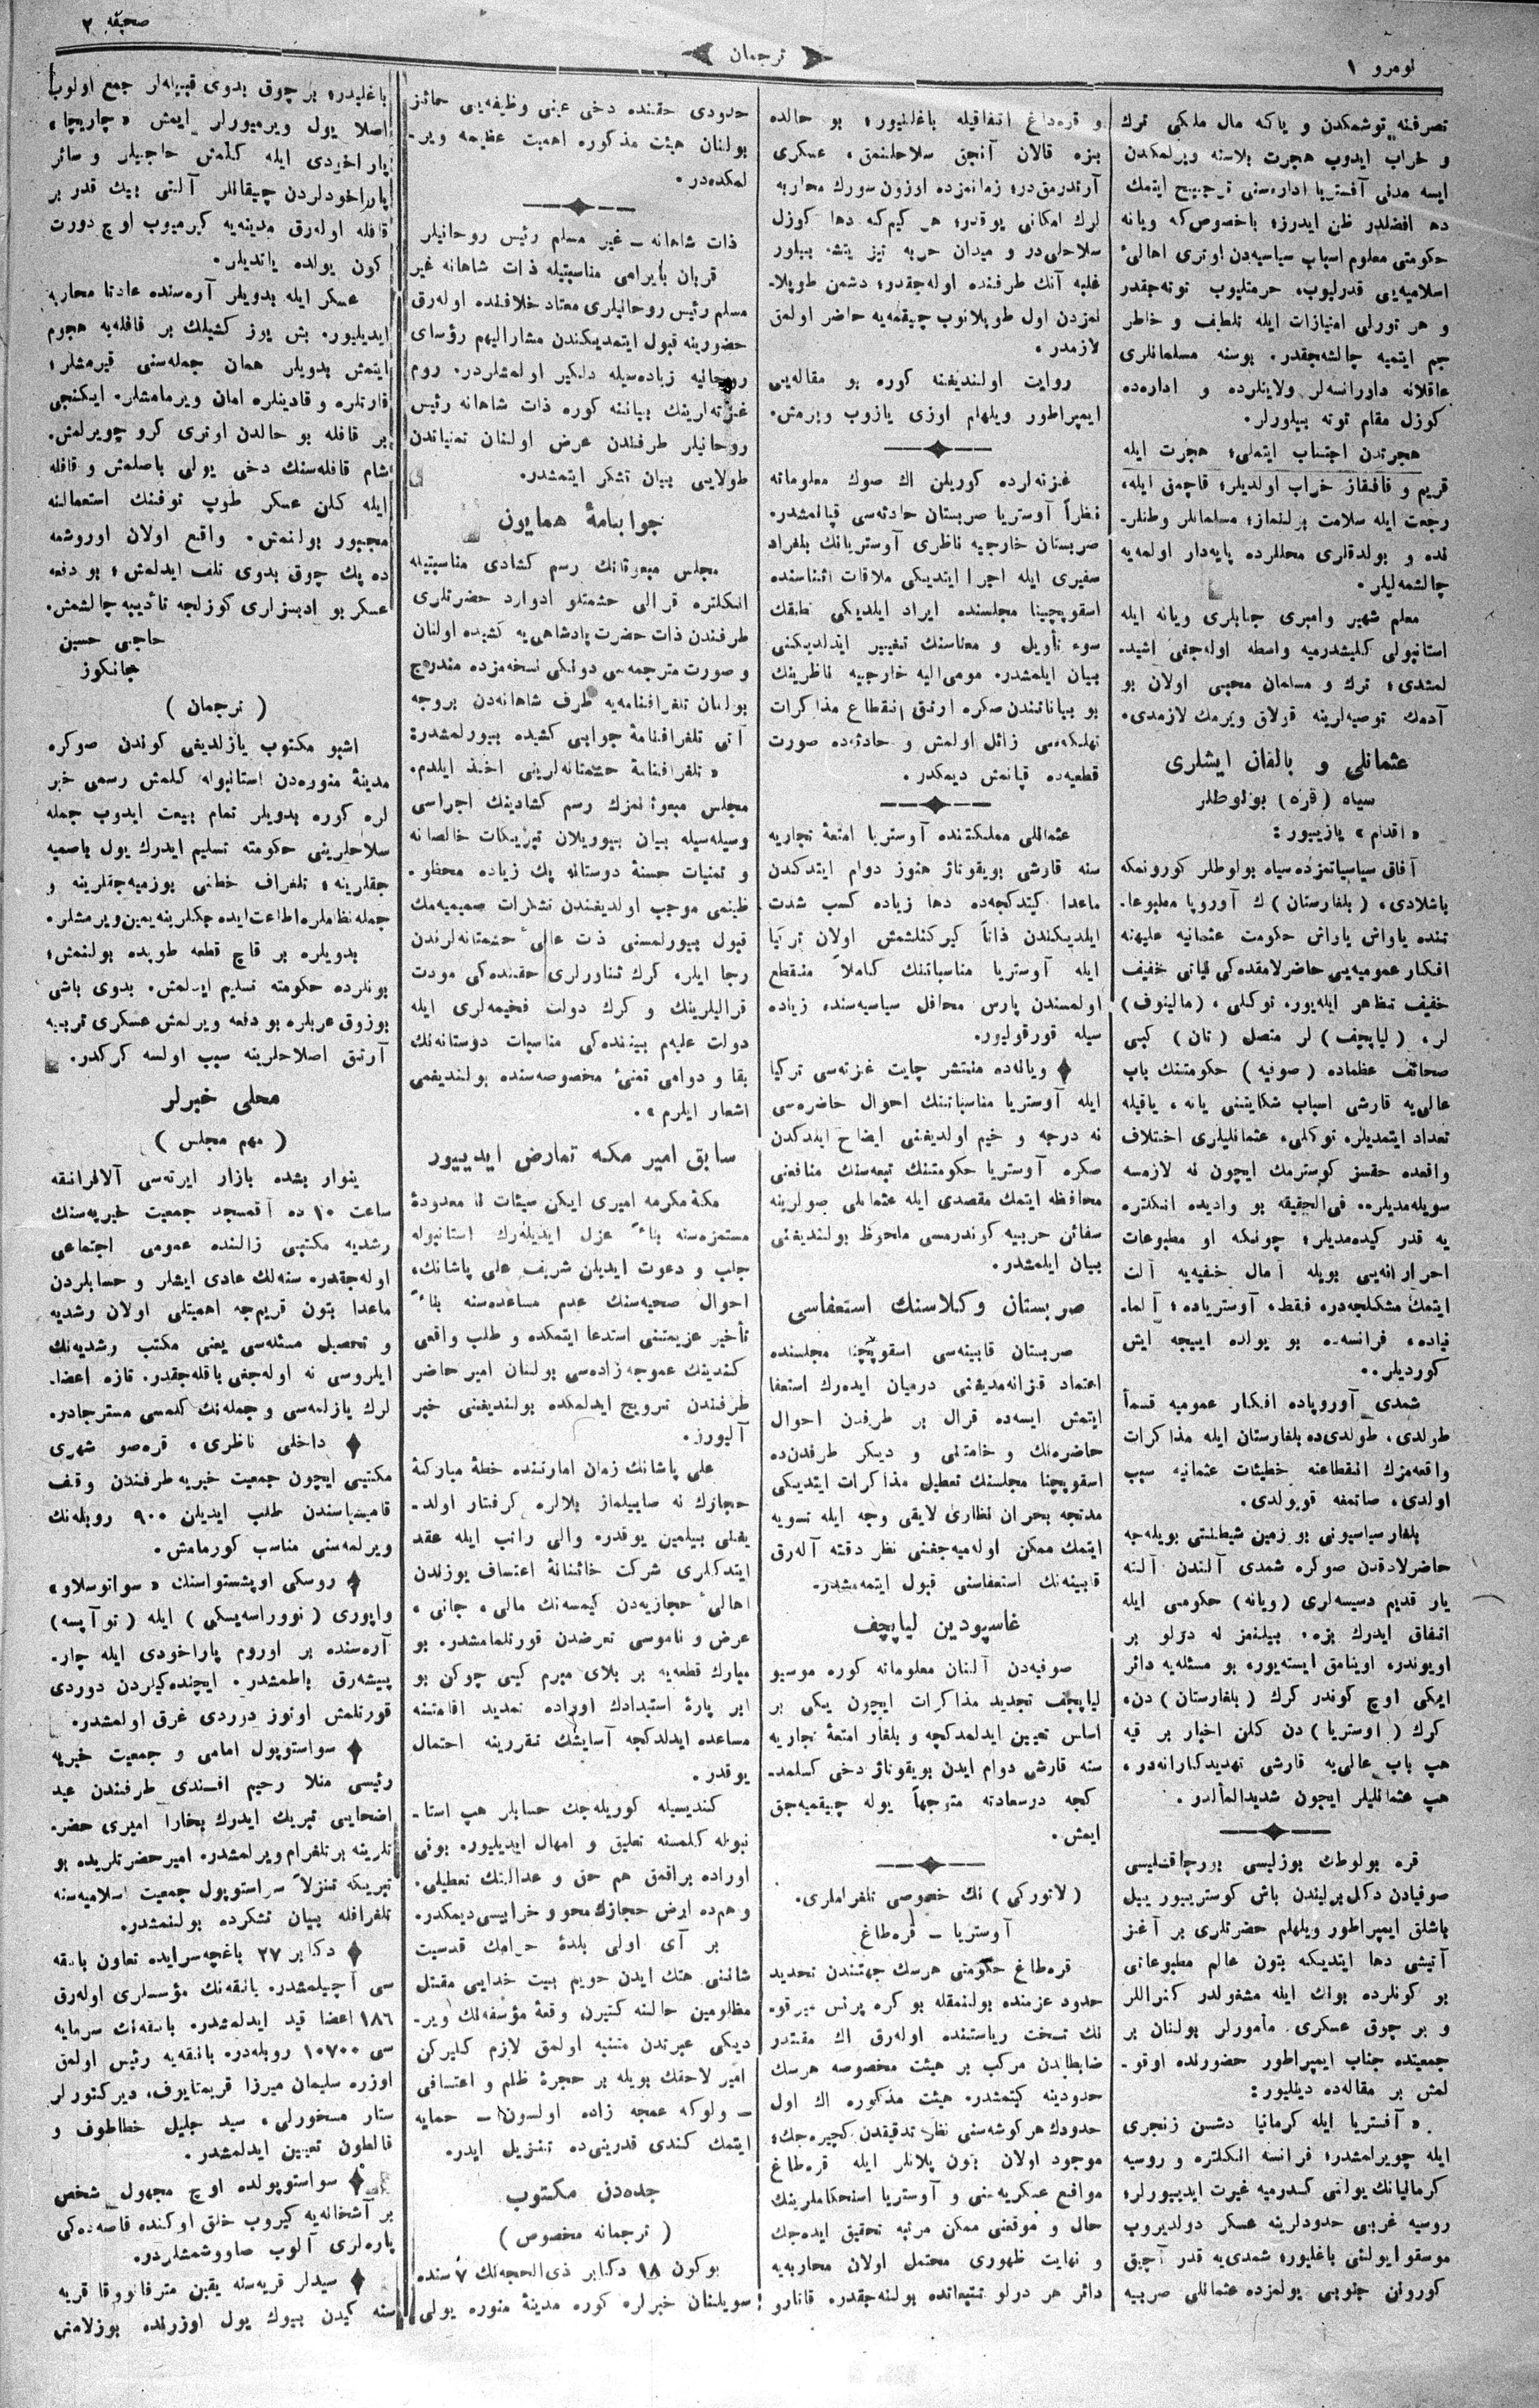 نومرو ١
ترجمان
صحیفه ٢
تصرفنه توشمكدن و ياكه مال ملكى ترك
و خراب ايدوب هجرت بلاسنه ويرلمكدن
ايسه مدنى آفستريا اداره‌سنى ترجيح ايتمك
دها افضلدر ظن ايدرز؛ باخصوص كه ويانه
حكومتى معلوم اسباب سياسيه‌دن اوترى اهالئ
اسلاميه‌يى قدرليوب، حرمتليوب توته‌جقدر
و هر تورلى امتيازات ايله تلطيف و خاطر
جم ايتميه چالشه‌جقدر. بوسنه مسلمانلرى
عاقلانه داورانسه‌لر ولايتلرده و اداره‌ده
كوزل مقام توته بيلورلر.
هجرتدن اجتناب ايتملى؛ هجرت ايله
قريم و قافقاز خراب اولديلر؛ قاچمق ايله،
رجعت ايله سلامت بولنماز؛ مسلمانلر وطنلر-
نده و بولدقلرى محللرده پايه‌دار اولمه‌يه
چالشمه‌ليلر.
معلم شهير وامبرى جنابلرى ويانه ايله
استانبولى كليشدرميه واسطه اوله‌جغى اشيد-
لمشدى؛ ترك و مسلمان محبى اولان بو
آدمك توصيه‌لرينه قولاق ويرمك لازمدى.
عثمانلى و بالقان ايشلرى
سياه (قره) بولوطلر
« اقدام » يازييور :
آفاق سياسياتمزده سياه بولوطلر كورونمكه
باشلادى، (بلغارستان) ك آوروپا مطبوعا-
تنده ياواش ياواش حكومت عثمانيه عليهنه
افكار عموميه‌يى حاضرلامقده‌كى
خفيف تظاهر ايله‌يور. توكلى، (مالينوف)
لر، (لياپچف) لر متصل (تان) كبى
صحائف عظماده (صوفيه) حكومتنك باب
عالى‌يه قارشى اسباب شكايتنى يانه ، ياقيله
تعداد ايتمديلر؛ عثمانليلرى اختلاف
واقعده حقسز كوسترمك ايچون نه لازمسه
سويله‌مديلر.. فى‌الحقيقه بو واديده انكلتره
يه قدر كيده‌مديلر؛ چونكه او مطبوعات
احرارانه‌يى بويله آمال خفيه‌يه آلت
ايتمك مشكلجه‌در، فقط، آوستريا‌ده ؛ آلما-
نياده، فرانسه‌ده بو يولده اييجه ايش
كورديلر..
شمدى آوروپاده افكار عموميه قسماً
طولدى، طولدى‌ده بلغارستان ايله مذاكرات
واقعه‌مزك انقطاعنه خطيئات عثمانيه سبب
اولدى، صانمغه قويولدى.
بلغار سياسيونى بو زمين شيطنتى بويله‌جه
حاضرلادقدن صوكره شمدى آلتدن آلته
يار قديم دسيسه‌لرى (ويانه) حكومتى ايله
اتفاق ايدرك بزه، بيلنمز نه درلو بر
اويوندر، اوينامق ايسته‌يور، بو مسئله‌يه دائر
ايكى اوچ كوندر كرك (بلغارستان) دن،
كرك (اوستريا) دن كلن اخبار بر قيه
هپ باب عالى‌يه قارشى تهديدكارانه‌در ،
هپ عثمانليلر ايچون شديدالمآلدر .
قره بولوطك بوزليسى بورچاقليسى
صوفيادن دكل برليندن باش كوستريور بيل
باشلق ايمپراطور ويلهلم حضرتلرى بر آغز
آتيشى دها ايتديكه بتون عالم مطبوعاتى
بو كونلرده بونك ايله مشغولدر كنراللر
و بر چوق عسكرى مأمورلر بولنان بر
جمعيتده جناب ايمپراطور حضورنده اوقو-
لمش بر مقاله‌ده دينليور :
« آفستريا ايله كرمانيا دشمن زنجرى
ايله چويرلمشدر؛ فرانسه انكلتره و روسيه
كرمانيانك يولنى كسدرميه غيرت ايدييورلر؛
روسيه غربى حدودلرينه عسكر دولديروب
موسقوا يولنى باغليور؛ شمدى‌يه قدر آچيق
كورونن جنوبى يولمزده عثمانلى صربيه
و قره‌داغ اتفاقيله باغلنيور؛ بو حالده
بزه قالان آنجق سلاحلنمق، عسكرى
آرتدرمق‌در؛ زمانمزده اوزون سورك محاربه
لرك امكانى يوقدر؛ هر كيم‌كه دها كوزل
سلاحلى‌در و ميدان حربه تيز يتشه بيلور
غلبه آنك طرفنده اوله‌جقدر؛ دشمن طوپلا-
نمزدن اول طوپلانوب چيقمه‌يه حاضر اولمق
لازمدر .
روايت اولنديغنه كوره بو مقاله‌يى
ايمپراطور ويلهلم اوزى يازوب ويرمش.
غزته‌لرده كوريلن اك صوك معلوماته
نظراً آوستريا صربستان حادثه‌سى قپانمشدر.
صربستان خارجيه ناظرى آوستريانك بلغراد
سفيرى ايله اجرا ايتديكى ملاقات اثناسنده
اسقوپچينا مجلسنده ايراد ايلديكى نطقك
سوء تأويل و معناسنك تغيير ايدلديكنى
بيان ايلمشدر. مومى‌اليه خارجيه ناظرينك
بو بياناتندن صكره آرتق انقطاع مذاكرات
تهلكه‌سى زائل اولمش و حادثه‌ده صورت
قطعيه‌ده قپانمش ديمكدر.
عثمانلى مملكتنده آوستريا امتعهٔ تجاريه
سنه قارشى بويقوتاژ هنوز دوام ايتدكدن
ماعدا كيتدكجه‌ده دها زياده كسب شدت
ايلديكندن ذاتاً كيركنلشمش اولان تركيا
ايله آوستريا مناسباتنك كاملاً منقطع
اولمسندن پارس محافل سياسيه‌سنده زياده
سيله قورقوليور.
ويانه‌ده منتشر چايت غزته‌سى تركيا
ايله آوستريا مناسباتنك احوال حاضره‌سى
نه درجه و خيم اولديغنى ايضاح ايلدكدن
صكره آوستريا حكومتنك تبعه‌سنك منافعنى
محافظه ايتمك مقصدى ايله عثمانلى صولرينه
سفائن حربيه كوندرمسى ملحوظ بولنديغنى
بيان ايلمشدر.
صربستان وكلاسنك استعفاسى
صربستان قابينه‌سى اسقوپچنا مجلسنده
اعتماد قزانه‌مديغنى درميان ايده‌رك استعفا
ايتمش ايسه‌ده قرال بر طرفدن احوال
حاضره‌نك و خامتنى و ديكر طرفدن‌ده
اسقوپچنا مجلسنك تعطيل مذاكرات ايتديكى
مدتجه بحران نظارى لايقى وجه ايله تسويه
ايتمك ممكن اوله‌ميه‌جغنى نظر دقته آله‌رق
قابينه‌نك استعفاسنى قبول ايتمه‌مشدر.
غاسپودين لياپچف
صوفيه‌دن آلنان معلوماته كوره موسيو
لياپچف تجديد مذاكرات ايچون يكى بر
اساس تعيين ايدلمدكچه و بلغار امتعهٔ تجاريه
سنه قارشى دوام ايدن بويقوتاژ دخى كسلمد-
كجه درسعادته متوجهاً يوله چيقميه‌جق
ايمش.
(لاتوركى) نك خصوصى تلغرافلرى.
آوستريا - قره‌طاغ
قره‌طاغ حكومتى هرسك جهتندن تحديد
حدود عزمنده بولنمقله بو كره پرنس ميرقو-
نك تحت رياستنده اوله‌رق اك مقتدر
ضابطاندن مركب بر هيئت مخصوصه هرسك
حدودينه كيتمشدر. هيئت مذكوره اك اول
حدودك هر كوشه‌سنى نظر تدقيقدن كچيره‌جك؛
موجود اولان بتون پلانلر ايله قره‌طاغ
مواقع عسكريه‌سنى و آوستريا استحكاملرينك
حال و موقعنى ممكن مرتبه تحقيق ايده‌جك
و نهايت ظهورى محتمل اولان محاربه‌يه
دائر هر درلو تتبعاتده بولنه‌جقدر. قاتارو
حدودى حقنده دخى عينى وظيفه‌يى حائز
بولنان هيئت مذكوره اهميت عظيمه وير-
لمكده‌در.
ذات شاهانه - غير مسلم رئيس روحانيلر
قربان بايرامى مناسبتيله ذات شاهانه غير
مسلم رئيس روحانيلرى معتاد خلافنده اوله‌رق
حضورينه قبول ايتمديكندن مشاراليهم رؤساى
روحانيه زياده‌سيله دلگير اولمشلردر. روم
غزته‌لرينك بياننه كوره ذات شاهانه رئيس
روحانيلر طرفندن عرض اولنان تمنياتدن
طولايى بيان تشكر ايتمشدر.
جوابنامهٔ همايون
مجلس مبعوثانك رسم كشادى مناسبتيله
انكلتره قرالى حشمتلو ادوارد حضرتلرى
طرفندن ذات حضرت پادشاهى‌يه كشيده اولنان
و صورت مترجمه‌سى دونكى نسخه‌مزده مندرج
بولنان تلغرافنامه‌يه طرف شاهانه‌دن بروجه
آتى تلغرافنامهٔ جوابى كشيده بيورلمشدر:
« تلغرافنامهٔ حشمتانه‌لرينى اخذ ايلدم.
مجلس مبعوثانمزك رسم كشادينك اجراسى
وسيله‌سيله بيان بيوريلان تبريكات خالصانه
و تمنيات حسنهٔ دوستانه پك زياده محظو-
ظيتمى موجب اولديغندن تشكرات صميميه‌مك
قبول بيورلمسنى ذت عالئ حشمتانه‌لرندن
رجا ايلر، كرك ثناورلرى حقنده‌كى مودت
قراليلرينك و كرك دولت فخيمه‌لرى ايله
دولت عليه‌م بيننده‌كى مناسبات دوستانه‌نك
بقا و دوامى تمنئ مخصوصه‌سنده بولنديغمى
اشعار ايلرم ».
سابق امير مكه تمارض ايدييور
مكهٔ مكرمه اميرى ايكن سيئات نا معدودهٔ
مستمره‌سنه بناءً عزل ايديله‌رك استانبوله
جلب و دعوت ايديلن شريف على پاشانك،
احوال صحيه‌سنك عدم مساعده‌سنه بناءً
تأخير عزيمتنى استدعا ايتمكده و طلب واقعى
كندينك عموجه زاده‌سى بولنان امير حاضر
طرفندن ترويج ايدلمكده بولنديغنى خبر
آليورز.
على پاشانك زمان امارتنده خطهٔ مباركهٔ
حجازك نه صاييلماز بلالره كرفتار اولد-
يغنى بيلمين يوقدر. والى راتب ايله عقد
ايتدكلرى شركت خائنانهٔ اعتساف يوزندن
اهالئ حجازيه‌دن كيمسه‌نك مالى ، جانى ،
عرض و ناموسى تعرضدن قورتلمامشدر. بو
مبارك قطعه‌يه بر بلاى مبرم كبى چوكن بو
ابر پارهٔ استبدادك اوراده تمديد اقامتنه
مساعده ايدلدكجه آسايشك تقررينه احتمال
يوقدر.
كنديسيله كوريله‌جك حسابلر هپ استا-
نبوله كلمسنه تعليق و امهال ايديليور. بونى
اوراده براقمق هم حق و عدالتك تعطيلى،
و هم‌ده ارض حجازك محو و خرابيسى ديمكدر.
بر آى اولى بلدهٔ حرامك قدسيت
شاننى هتك ايدن حريم بيت خدايى مقتل
مظلومين حالنه كتيرن وقعهٔ مؤسفه‌نك وير-
ديكى عبرتدن متنبه اولمق لازم كليركن
امير لاحقك بويله بر حجرهٔ ظلم و اعتسافى
- ولوكه عمجه زاده اولسون - حمايه
ايتمك كندى قدرينى‌ده تنزيل ايدر.
جده‌دن مكتوب
(ترجمانه مخصوص)
بوكون ١٨ دكابر ذى‌الحجه‌نك ٧ سنده
سويلنان خبرلره كوره مدينهٔ منوره يولى
باغليدر، بر چوق بدوى قبيله‌لر جمع اولوب
اصلا يول ويرميورلر ايمش « چاريچا »
پاراخودى ايله كلمش حاجيلر و سائر
پاراخودلردن چيقانلر آلتى بيك قدر بر
قافله اوله‌رق مدينه‌يه كيرميوب اوچ دورت
كون يولده ياتديلر.
عسكر ايله بدويلر آره‌سنده عادتا محاربه
ايديليور. بش يوز كشيلك بر قافله‌يه هجوم
ايتمش بدويلر همان جمله‌سنى قيرمشلر؛
قارتلره و قادينلره امان ويرمامشلر. ايكنجى
بر قافله بو حالدن اوترى كرو چويرلمش.
شام قافله‌سنك دخى يولى باصلمش و قافله
ايله كلن عسكر طوپ توفنك استعمالنه
مجبور بولنمش. واقع اولان اوروشمه
ده پك چوق بدوى تلف ايدلمش؛ بو دفعه
عسكر بو ادبسزلرى كوزلجه تأديبه چالشمش.
حاجى حسين
جانكوز
(ترجمان)
اشبو مكتوب يازلديغى كوندن صوكره
مدينهٔ منوره‌دن استانبوله كلمش رسمى خبر
لره كوره بدويلر تمام بيعت ايدوب جمله
سلاحلرينى حكومته تسليم ايدرك يول باصميه
جقلرينه؛ تلغراف خطنى بوزميه‌جقلرينه و
جمله نظاملره اطاعت ايده‌جكلرينه يمين ويرمشلر.
بدويلره بر قاچ قطعه طوپده بولنمش؛
بونلرده حكومته تسليم ايدلمش. بدوى باشى
بوزوق عربلره بو دفعه ويرلمش عسكرى تربيه
آرتق اصلاحلرينه سبب اولسه كركدر.
محلى خبرلر
(مهم مجلس)
ينوار بشده بازار ايرته‌سى آلافرانقه
ساعت ١٠ ده آقمسجد جمعيت خيريه‌سنك
رشديه مكتبى زالنده عمومى اجتماعى
اوله‌جقدر. سنه‌لك عادى ايشلر و حسابلردن
ماعدا بتون قريمجه اهميتلى اولان رشديه
و تحصيل مسئله‌سى يعنى مكتب رشديه‌نك
ايلروسى نه اوله‌جغى باقله‌جقدر. تازه اعضا-
لرك يازلمه‌سى و جمله‌نك كلمسى مسترجادر.
داخلى ناظرى، قره‌صو شهرى
مكتبى ايچون جمعيت خيريه طرفندن وقف
قاميسياسندن طلب ايديلن ٩٠٠ روبله‌نك
ويرلمه‌سنى مناسب كورمامش.
روسكى اوبشستواسنك « سواتوسلاو »
واپورى (نووراسيسكى) ايله (توآپسه)
آره‌سنده بر اوروم پاراخودى ايله چار-
پيشه‌رق باطمشدر. ايچنده‌كيلردن دوردى
قورتلمش اوتوز دوردى غرق اولمشدر.
سواستوپول امامى و جمعيت خيريه
رئيسى منلا رحيم افندى طرفندن عيد
اضحايى تبريك ايدرك بخارا اميرى حضر-
تلرينه بر تلغرام ويرلمشدر. امير حضرتلريده بو
تبريكه تنزلاً سواستوپول جمعيت اسلاميه‌سنه
تلغرافله بيان تشكرده بولنمشدر.
دكابر ٢٧ باغچه‌سرايده تعاون بانقه
سى آچيلمشدر. بانقه‌نك مؤسسلرى اوله‌رق
١٨٦ اعضا قيد ايدلمشدر. بانقه‌نك سرمايه
سى ١٠٧٠٠ روبله‌در. بانقه‌يه رئيس اولمق
اوزره سليمان ميرزا قريمتايوف، ديركتورلر
ستار مسخورلى، سيد جليل خطاطوف و
قالطون تعيين ايدلمشدر.
سواستوپولده اوچ مجهول شخص
بر آشخانه‌يه كيروب خلق اوكنده قاصه‌ده‌كى
پاره‌لرى آلوب صاووشمشلردر.
سيدلر قريه‌سنه يقين مترفانووقا قريه
سنه كيدن بيوك يول اوزرنده بوزلامش